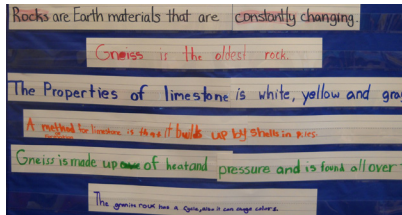 Rocks are Earth materials that are constantly changing.
Gneiss is the oldest rock.
The Properties of limestone is white, yellow and gray
A method for limestone is that it builds up by shells in piles.
Gneiss is made up of heat and pressure and is found all over
The granite rock has a cycle, also it can change colors.